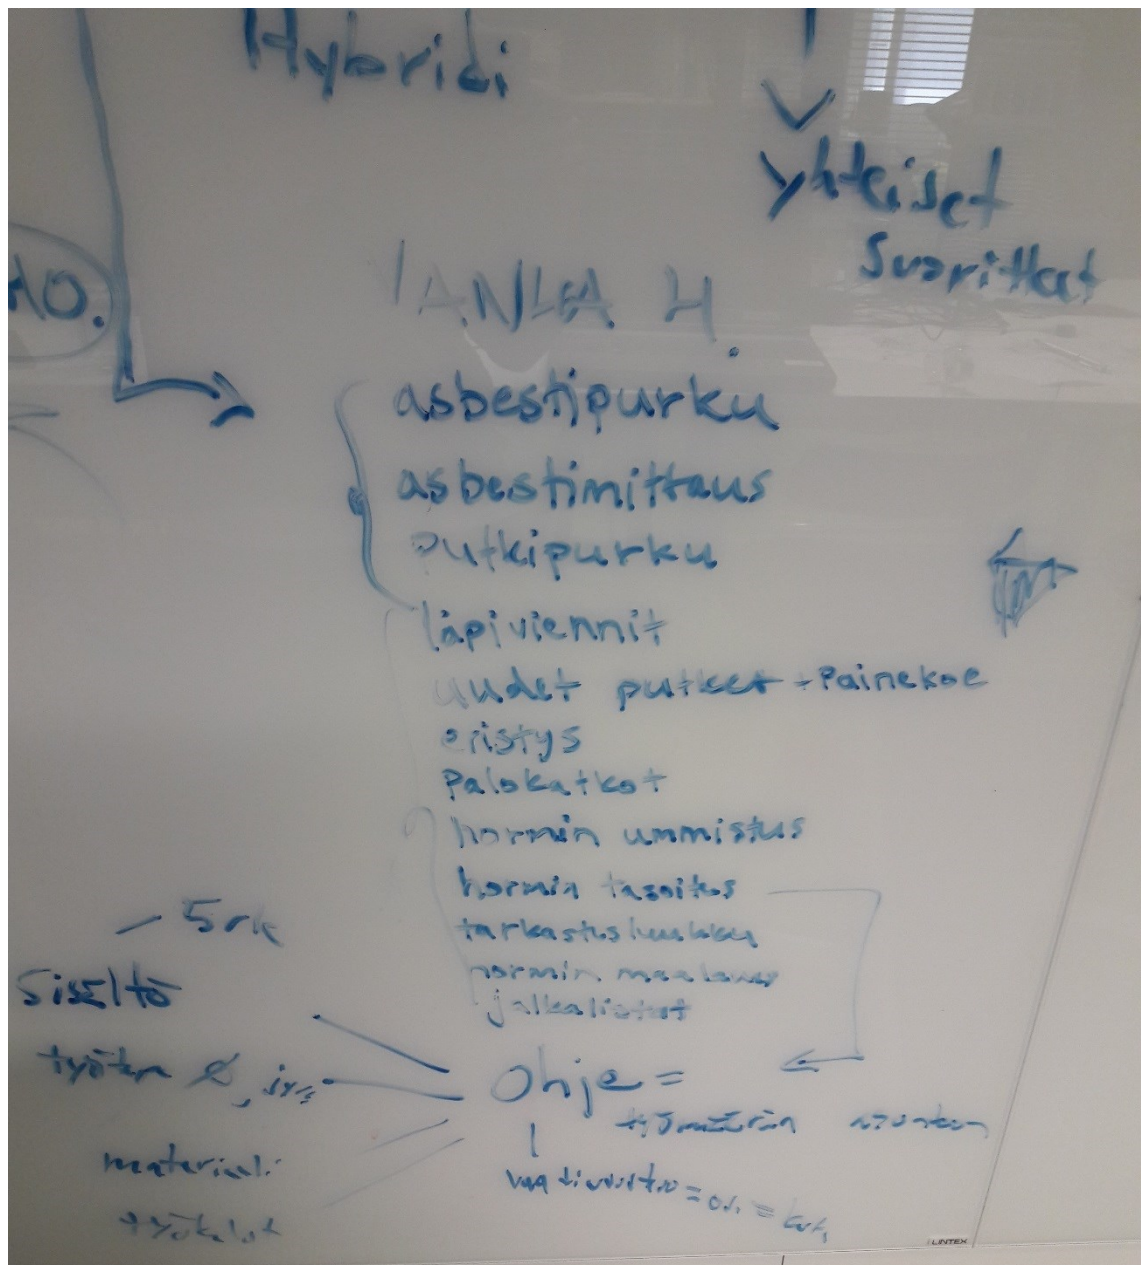 Hybridi
yhteiset
suorittat
HO.
asbestipurku
asbestimittaus
putkipurku
läpiviennit
uudet putket + Painekoe
eristys
Palokatkot
hormin ummistus
hormin tasoitus
tarkastusluukku
hormin maalaus
jalkalistat
Sisältö
Ohje =
materiaali
työkalut
LINTEX